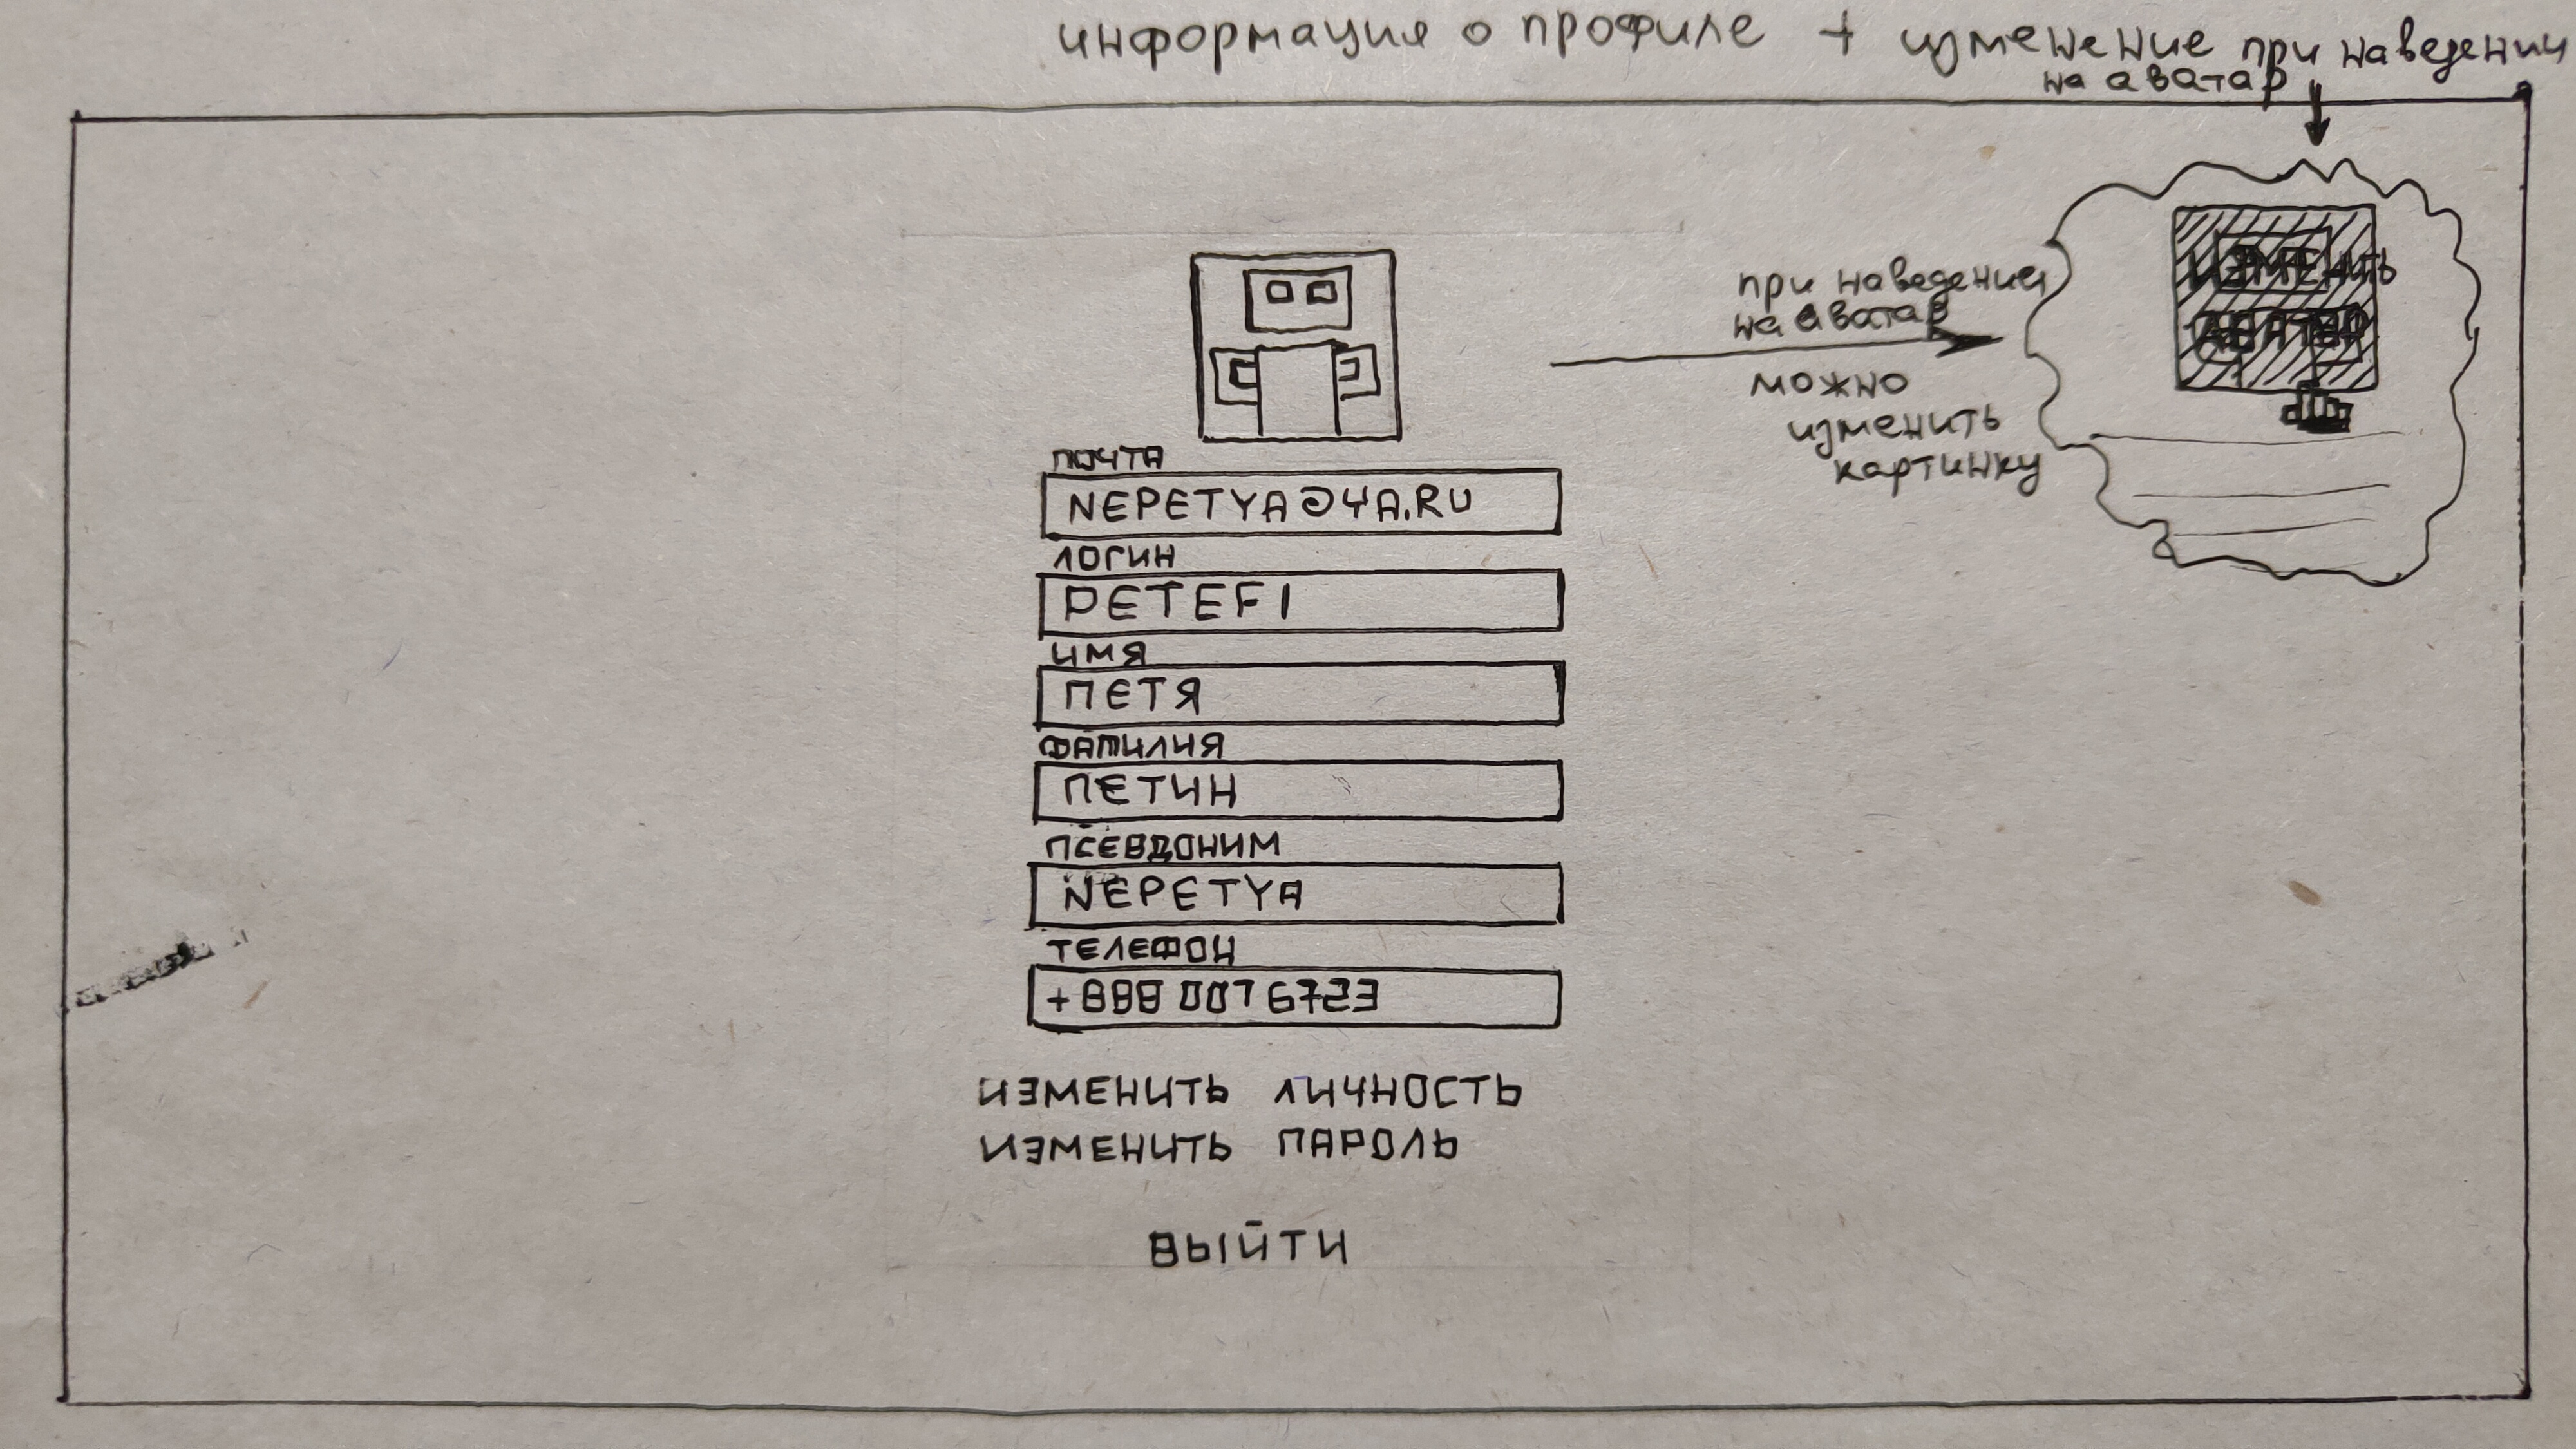 информация о профиле + изменение при наведении
на аватар
при наведении
на аватар
можно
изменить
картинку
ИЗМЕНИТЬ
АВАТАР
ПОЧТА
NEPETYA@YA.RU
ЛОГИН
PETEFI
ИМЯ
ПЕТЯ
ФАМИЛИЯ
ПЕТИН
ПСЕВДОНИМ
NEPETYA
ТЕЛЕФОН
+888 007 6723
ИЗМЕНИТЬ ЛИЧНОСТЬ
ИЗМЕНИТЬ ПАРОЛЬ
ВЫЙТИ